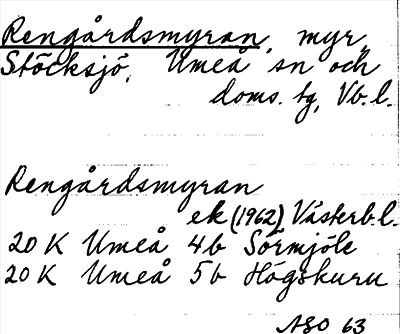 Rengårdsmyran, myr,
Stöcksjö, Umeå sn och
doms. tg, Vb. l.
Rengårdsmyran
ek (1962) Västerb. l.
20 K Umeå 4b Sörmjöle
20 K Umeå 5b Högskuru
NSO 63